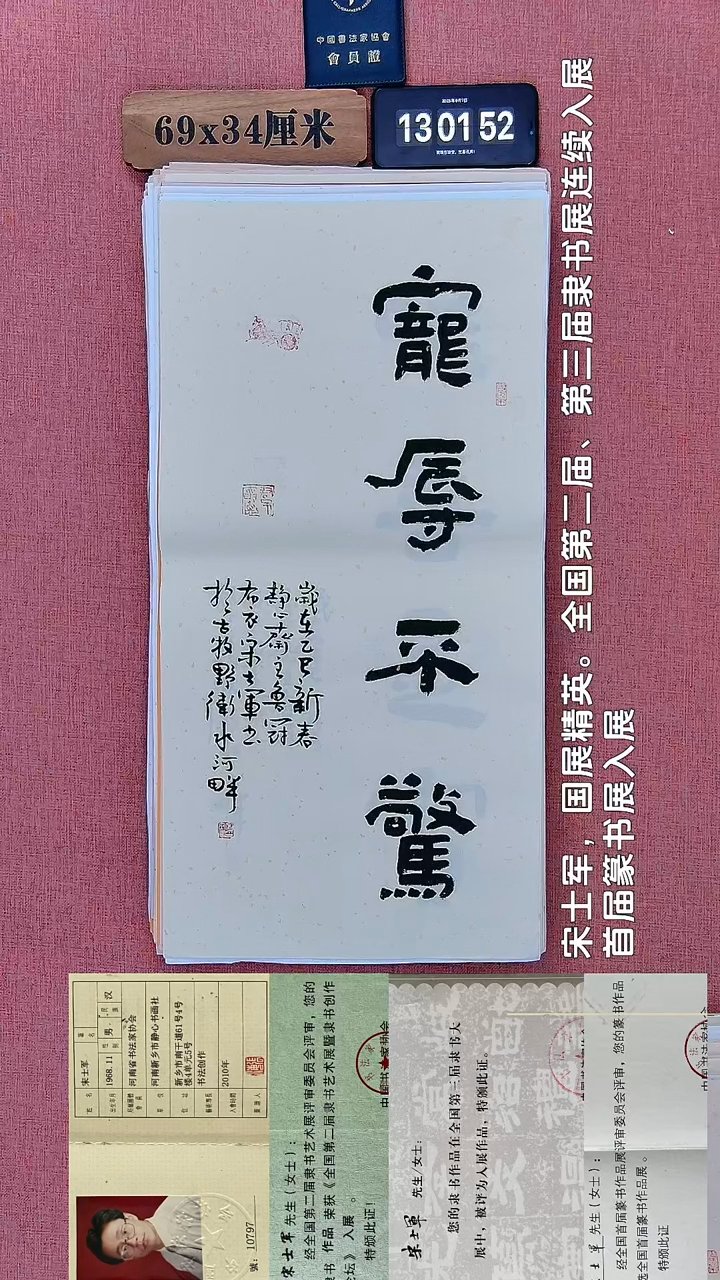 中國書法家協會
會員證
69x34厘米
13 01 52
寵辱不驚
歲在乙巳新春
静心齋主魯冠
布衣宋士軍書
於古牧野衛水河畔
宋士军，国展精英。全国第二届、第三届隶书展连续入展
首届篆书展入展
姓名 宋士军
出生年月 1968.11 性别 男 民族 汉
河南省书法家协会
河南新乡市静心书画社
新乡市南干道61号4号
楼4单元5号
书法创作
2010年
號：10797
宋士军 先生（女士）：
经全国第二届隶书艺术展评审委员会评审，您的
隶书 作品 荣获《全国第二届隶书艺术展暨隶书创作
论坛》入展 。
特颁此证！
宋士軍 先生/女士：
您的隶书作品在全国第三届隶书大
展中，被评为入展作品，特颁此证。
士军 先生（女士）：
经全国首届篆书作品展评审委员会评审，您的篆书作品
全国首届篆书作品展 。
特颁此证